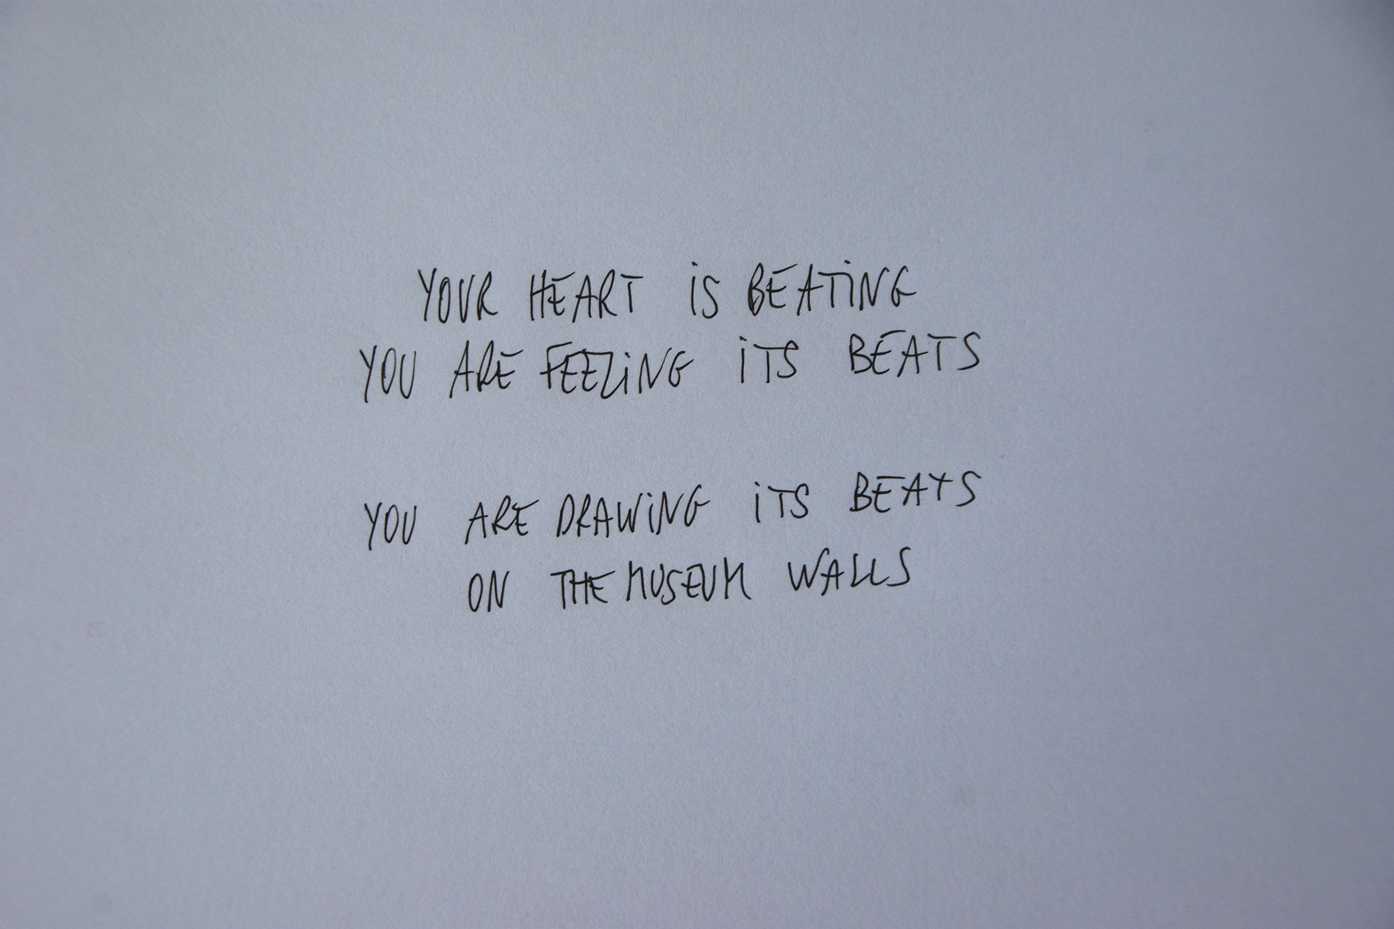 YOUR HEART iS BEATiNG
YOU ARE FEELiNG iTS BEATS
YOU ARE DRAWiNG iTS BEATS
ON THE MUSEUM WALLS